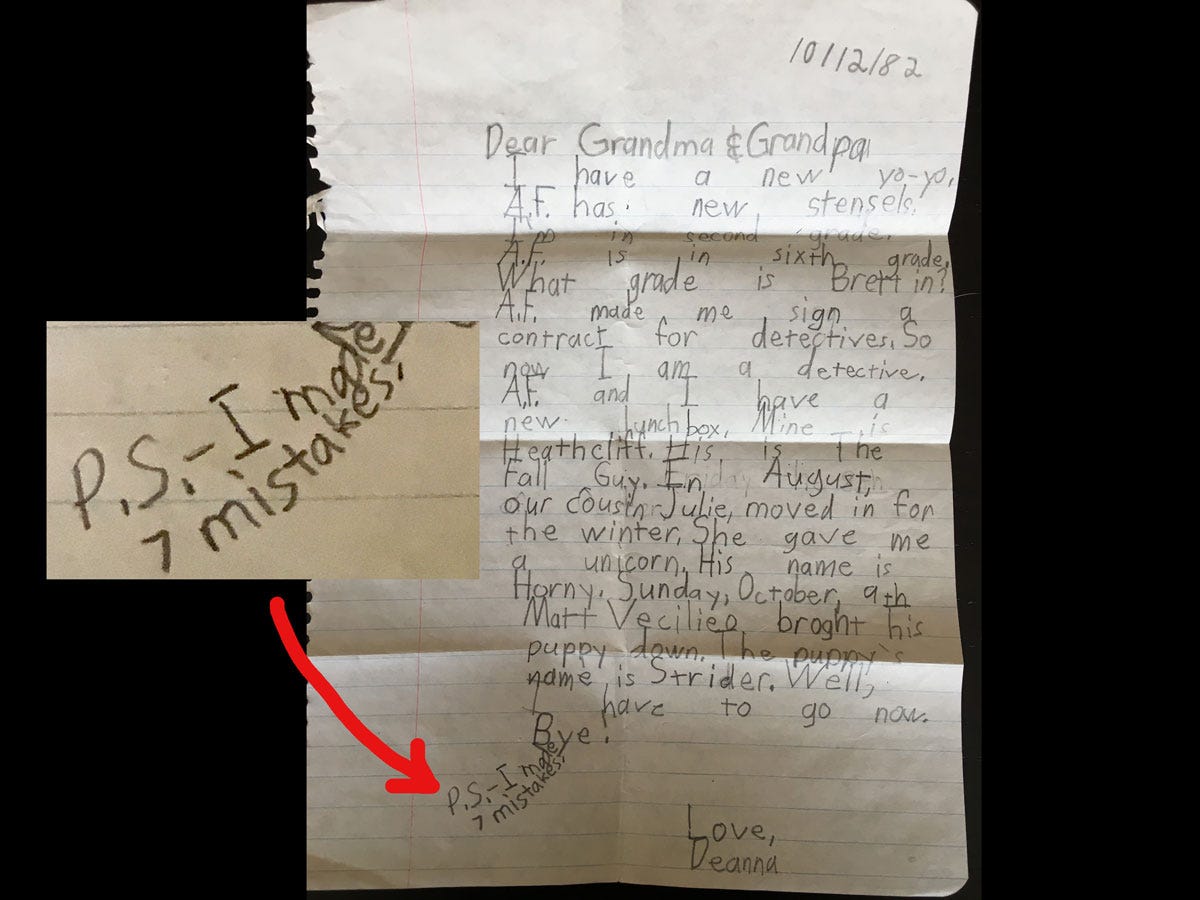 10/12/82
Dear Grandma & Grandpa
I have a new yo-yo.
A.F. has new stensels.
I'm in second grade.
A.F. is in sixth grade.
What grade is Brett in?
A.F. made me sign a
contract for detectives. So
now I am a detective.
A.F. and I have a
new lunch box. Mine is
Heathcliff. His is The
Fall Guy. En August,
our cousin Julie, moved in for
the winter. She gave me
a unicorn. His name is
Horny. Sunday, October, 9th
Matt Vecilieo broght his
puppy down. The puppy's
name is Strider. Well,
I have to go now.
Bye!
P.S.-I made
7 mistakes!
Love,
Deanna
P.S.-I made
7 mistakes!